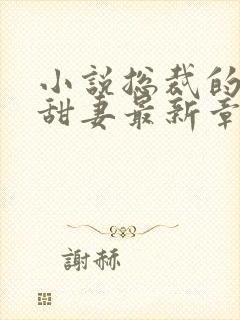 小说总裁的
甜妻最新章
謝赫